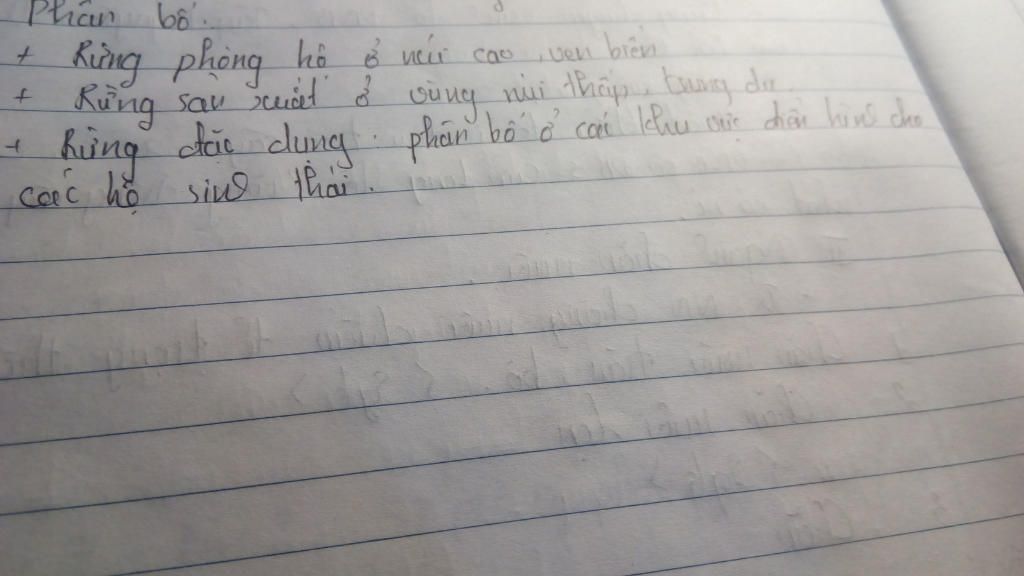 Phân bố.
+ Rừng phòng hộ ở núi cao, ven biển
+ Rừng sản xuất ở vùng núi thấp, trung du
+ Rừng đặc dụng: phân bố ở các khu vực điển hình cho
các hệ sinh thái.